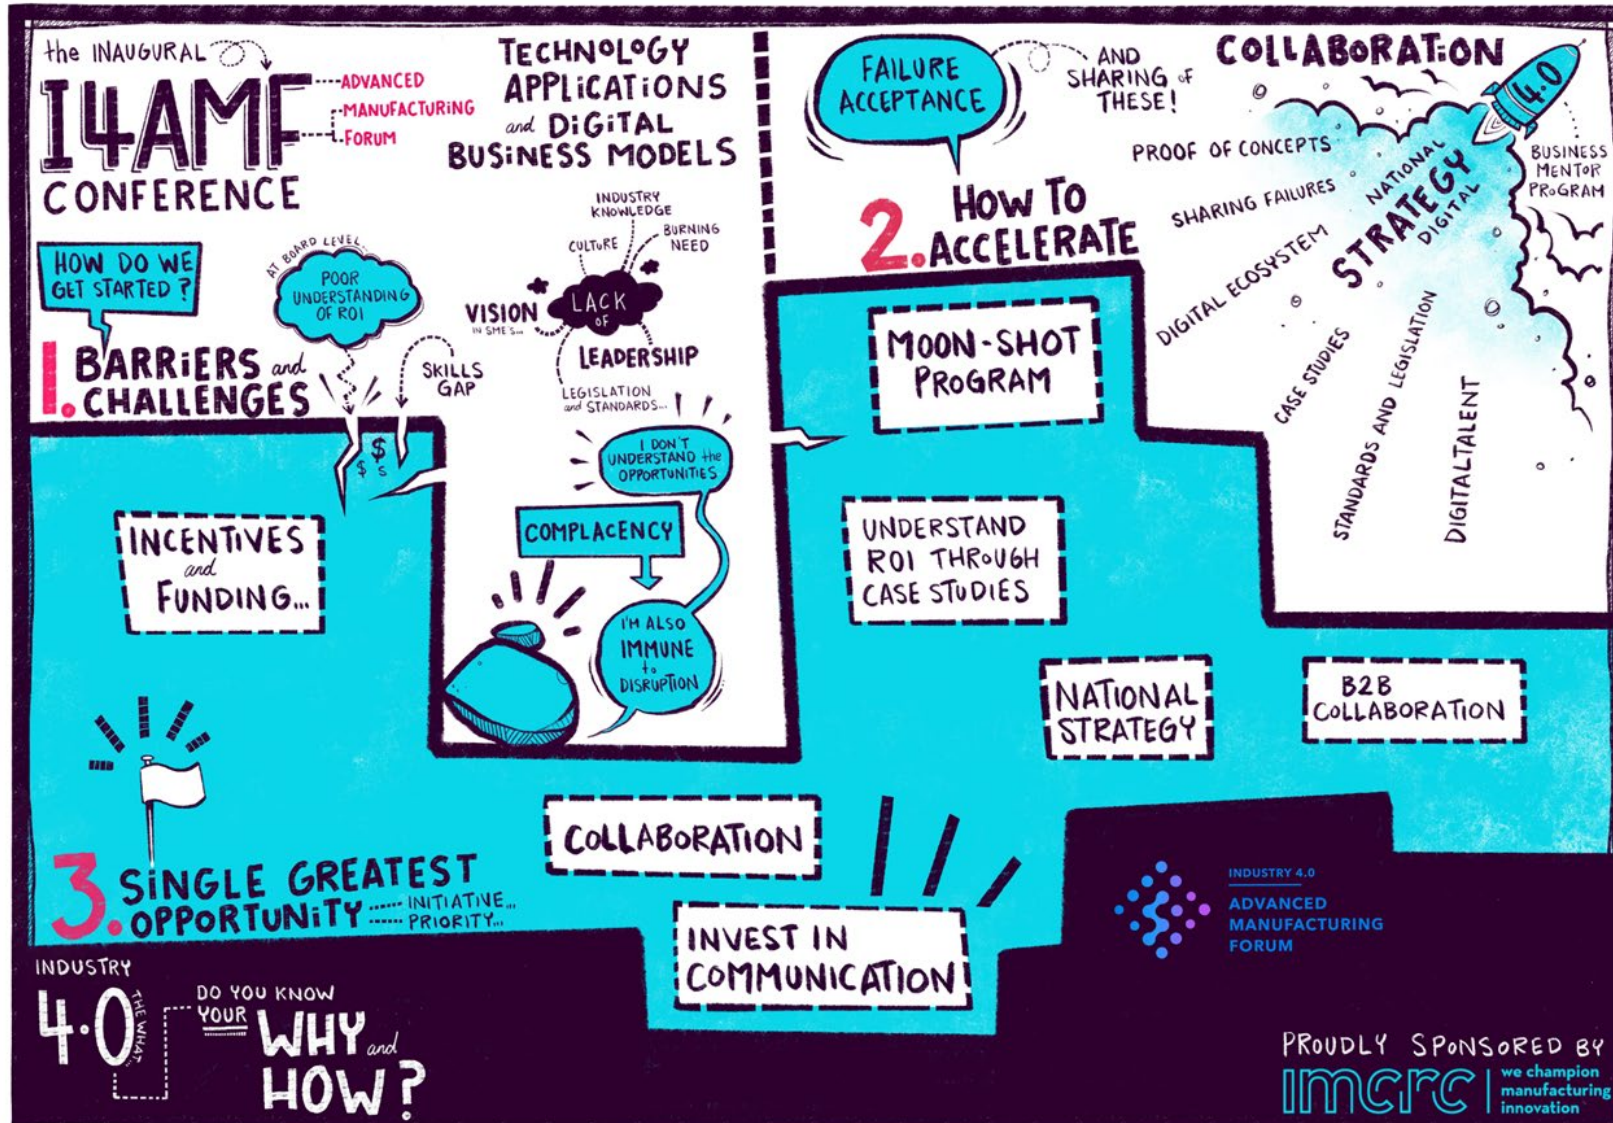 the INAUGURAL
I4AMF
ADVANCED
MANUFACTURING
FORUM
CONFERENCE
TECHNOLOGY
APPLICATIONS
and DIGITAL
BUSINESS MODELS
HOW DO WE
GET STARTED?
1. BARRIERS and
CHALLENGES
AT BOARD LEVEL...
POOR
UNDERSTANDING
OF ROI
SKILLS
GAP
$
$ S
INDUSTRY
KNOWLEDGE
CULTURE
BURNING
NEED
LACK
OF
VISION
IN SME'S...
LEADERSHIP
LEGISLATION
and STANDARDS...
I DON'T
UNDERSTAND the
OPPORTUNITIES
COMPLACENCY
I'M ALSO
IMMUNE
to
DISRUPTION
INCENTIVES
and
FUNDING...
FAILURE
ACCEPTANCE
AND
SHARING of
THESE!
2. HOW TO
ACCELERATE
COLLABORATION
4.0
BUSINESS
MENTOR
PROGRAM
NATIONAL
STRATEGY
DIGITAL
PROOF OF CONCEPTS
SHARING FAILURES
DIGITAL ECOSYSTEM
CASE STUDIES
STANDARDS AND LEGISLATION
DIGITALTALENT
MOON-SHOT
PROGRAM
UNDERSTAND
ROI THROUGH
CASE STUDIES
NATIONAL
STRATEGY
B2B
COLLABORATION
COLLABORATION
INVEST IN
COMMUNICATION
3. SINGLE GREATEST
OPPORTUNITY
INITIATIVE...
PRIORITY...
INDUSTRY
4.0
THE WHAT...
DO YOU KNOW
YOUR
WHY and
HOW?
INDUSTRY 4.0
ADVANCED
MANUFACTURING
FORUM
PROUDLY SPONSORED BY
imcrc
we champion
manufacturing
innovation